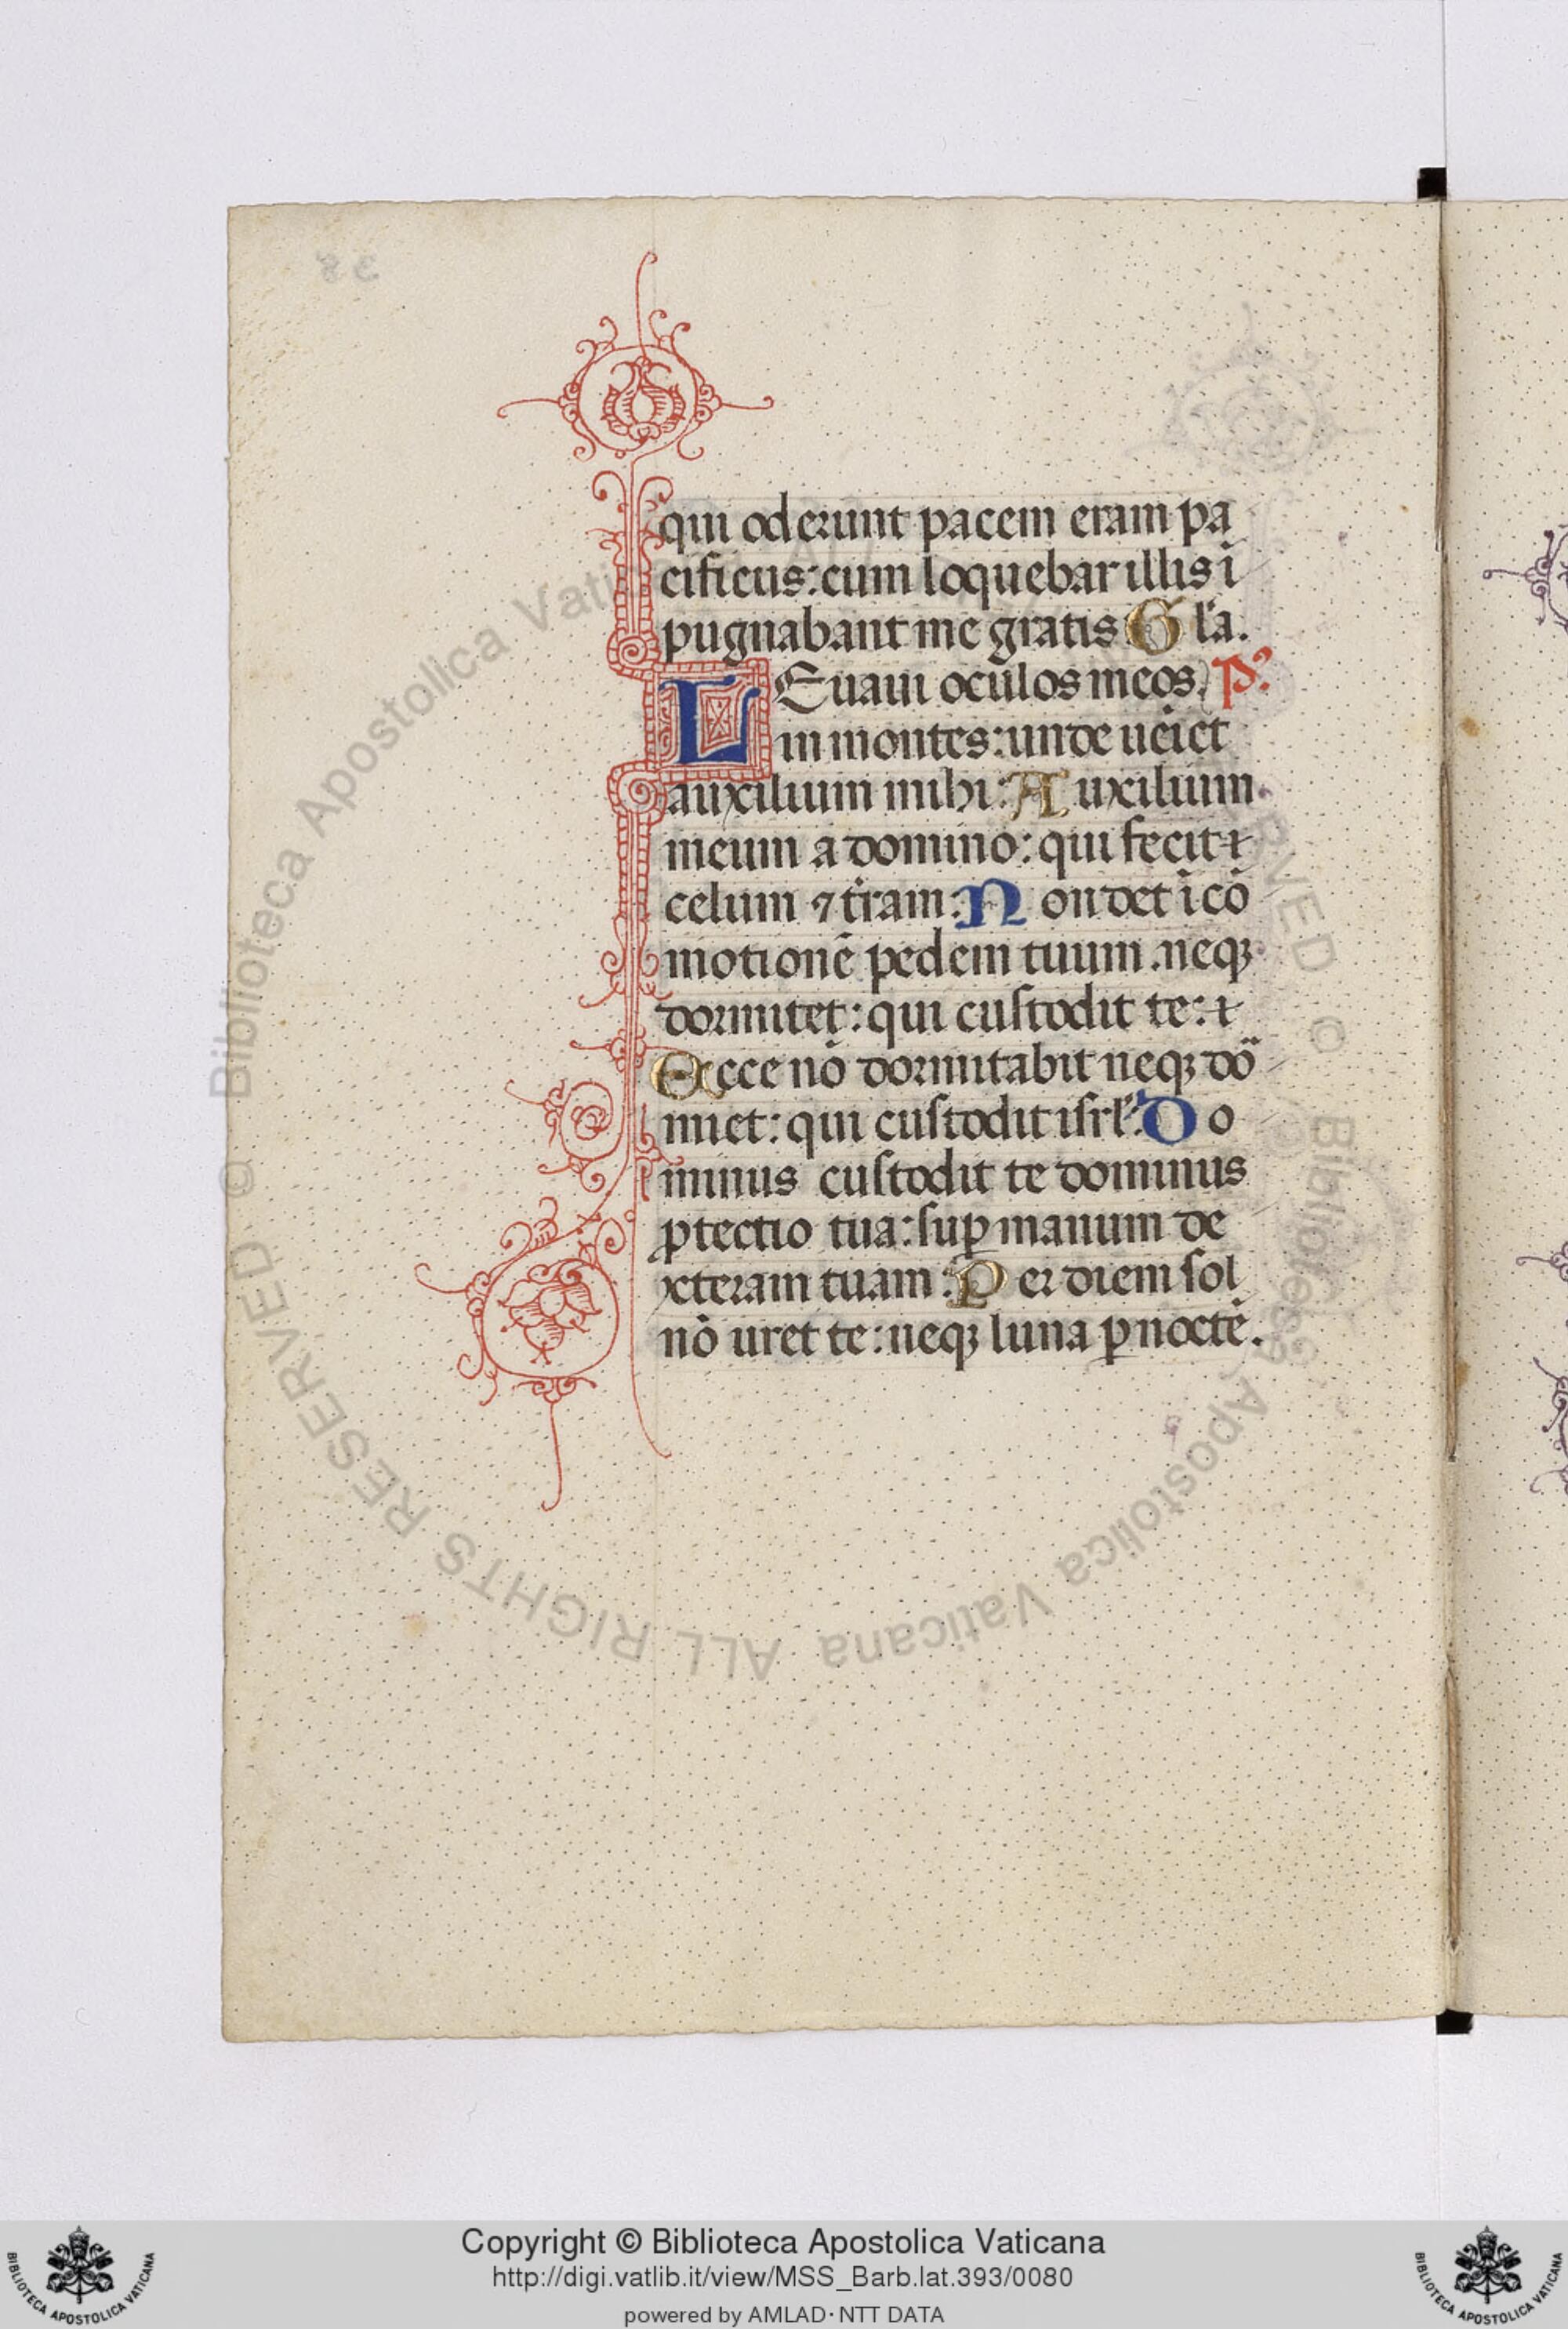 qui oderunt pacem eram pa
cificus: cum loquebar illis ī
pugnabant me gratis. Gl'a.
LEuaui oculos meos. p̃s.
in montes: unde ueīet
auxilium mihi: Auxilium
meum a domino: qui fecit
celum ⁊ t̃ram: Non det ī cō
motionē pedem tuum. neqꝫ
dormitet: qui custodit te:
Ecce nō dormitabit neqꝫ dō
miet: qui custodit isrl': Do
minus custodit te dominus
ꝓtectio tua: suꝑ manum de
xteram tuam: Per diem sol
nō uret te: neqꝫ luna ꝑ noctē.
Copyright © Biblioteca Apostolica Vaticana
http://digi.vatlib.it/view/MSS_Barb.lat.393/0080
powered by AMLAD·NTT DATA
BIBLIOTECA APOSTOLICA VATICANA
BIBLIOTECA APOSTOLICA VATICANA
© Biblioteca Apostolica Vaticana ALL RIGHTS RESERVED © Biblioteca Apostolica Vaticana ALL RIGHTS RESERVED